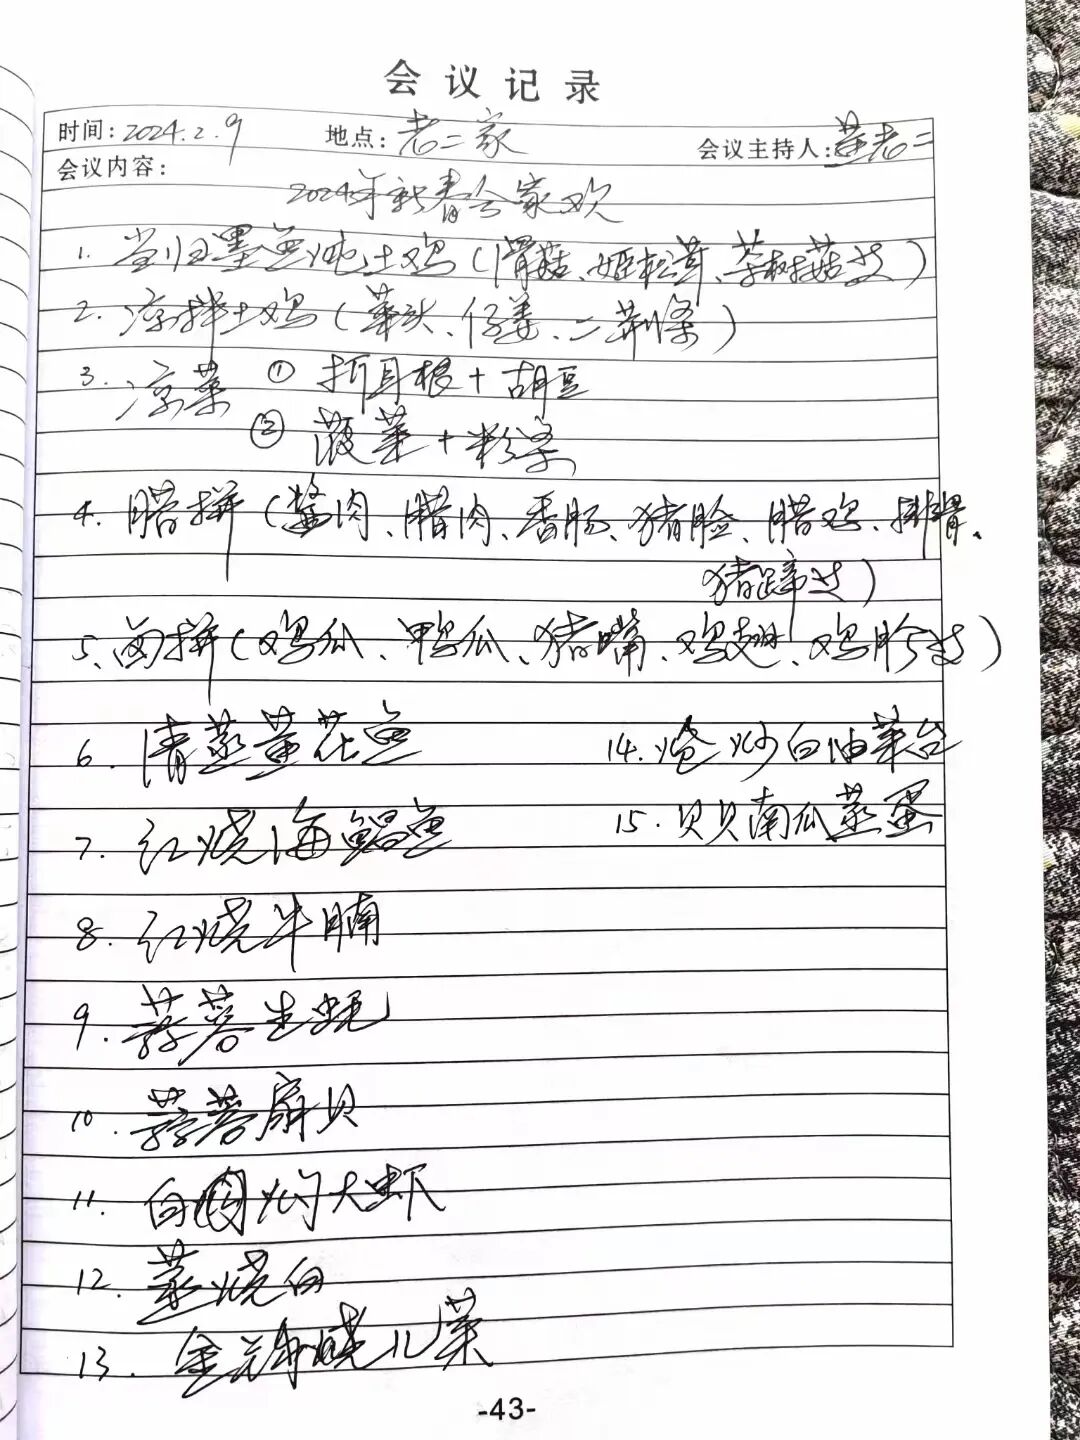 会议记录
时间: 2024.2.9 地点: 老二家 会议主持人: 董老二
会议内容:
2024年新春合家欢
1. 当归墨鱼炖土鸡(滑菇、姬松茸、茶树菇等)
2. 凉拌土鸡(藠头、仔姜、二荆条)
3. 凉菜 ① 折耳根+胡豆
② 菠菜+粉条
4. 腊拼(酱肉、腊肉、香肠、猪脸、腊鸡、排骨、
猪蹄等)
5. 卤拼(鸡爪、鸭爪、猪嘴、鸡翅、鸡胗等)
6. 清蒸黄花鱼
7. 红烧海鲳鱼
8. 红烧牛腩
9. 蒜蓉生蚝
10. 蒜蓉扇贝
11. 白灼大虾
12. 蒸烧白
13. 烧儿菜
14. 炝炒白油菜台
15. 贝贝南瓜蒸蛋
-43-